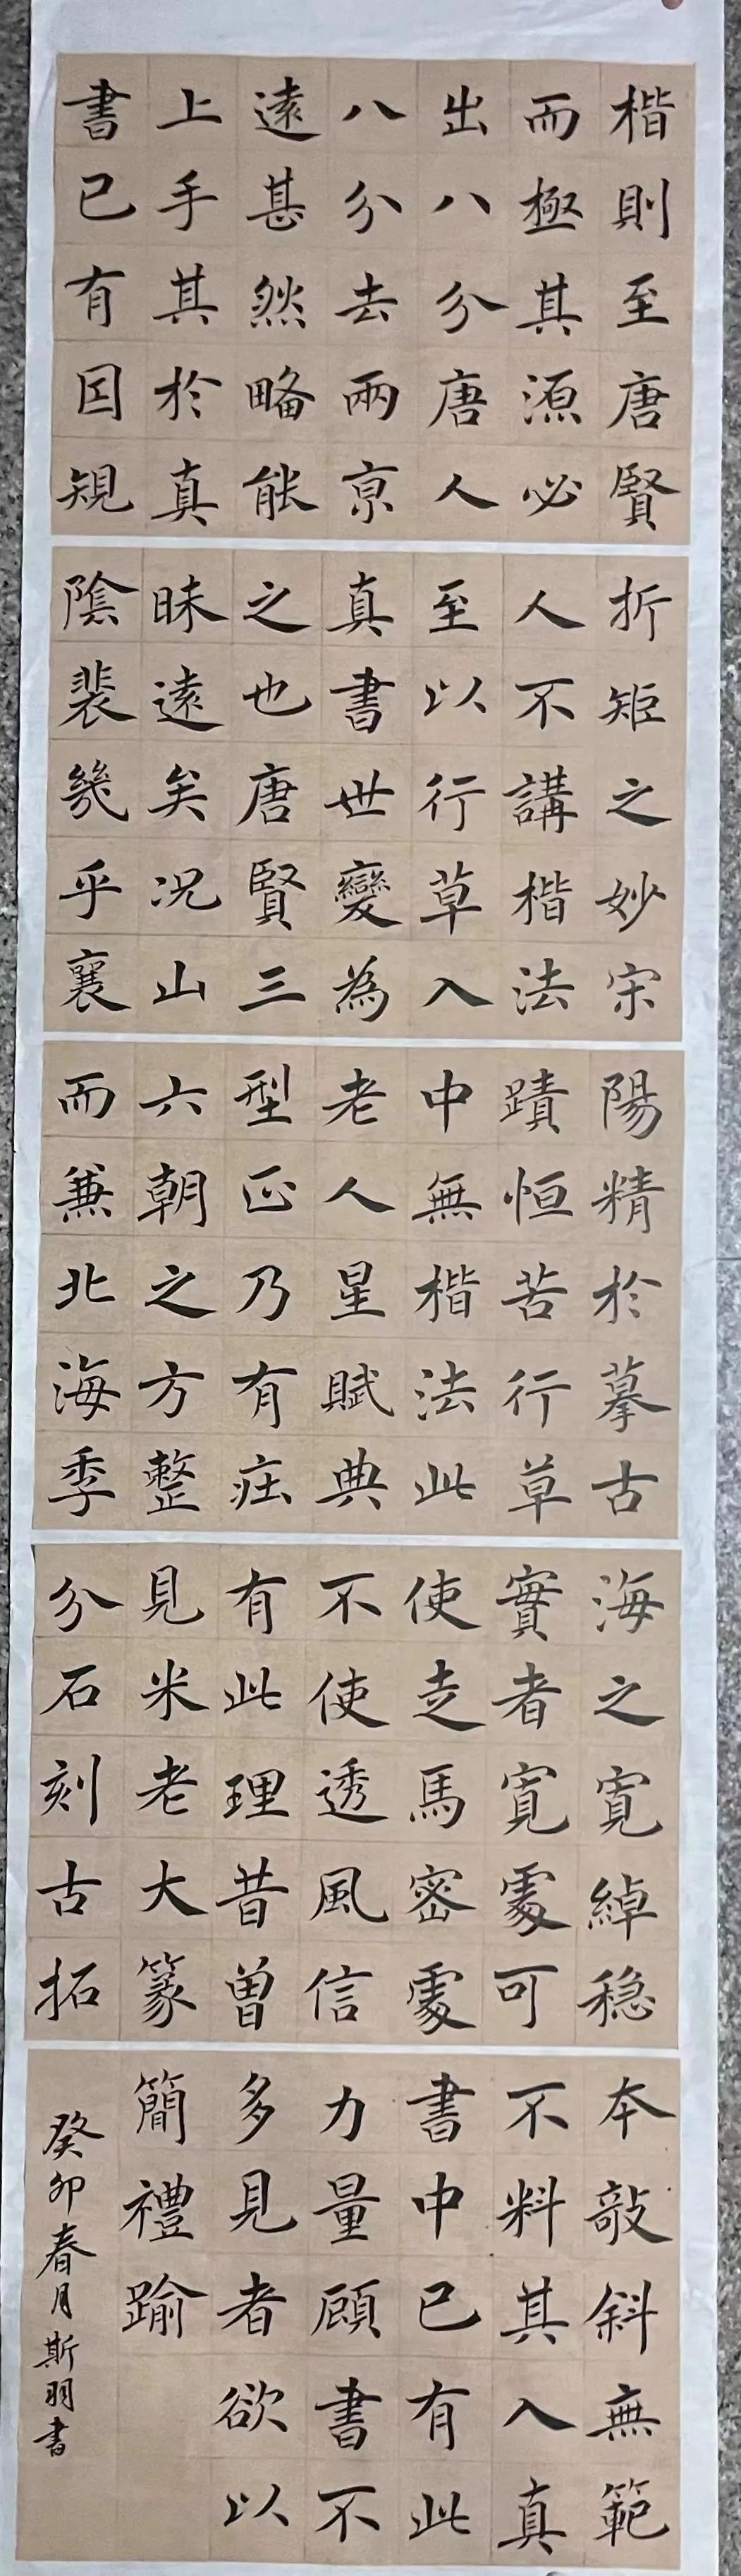 楷則至唐賢
而極其源必
出八分唐人
八分去兩京
遠甚然略能
上手其於真
書已有囙規
折矩之妙宋
人不講楷法
至以行草入
真書世變為
之也唐賢三
昧遠矣况山
陰裴幾乎襄
陽精於摹古
蹟恒苦行草
中無楷法此
老人星賦典
型正乃有庄
六朝之方整
而兼北海季
海之寬綽稳
實者寬處可
使走馬密處
不使透風信
有此理昔曾
見米老大篆
分石刻古拓
本敧斜無範
不料其入真
書中已有此
力量顧書不
多見者欲以
簡禮踰
癸卯春月斯羽書